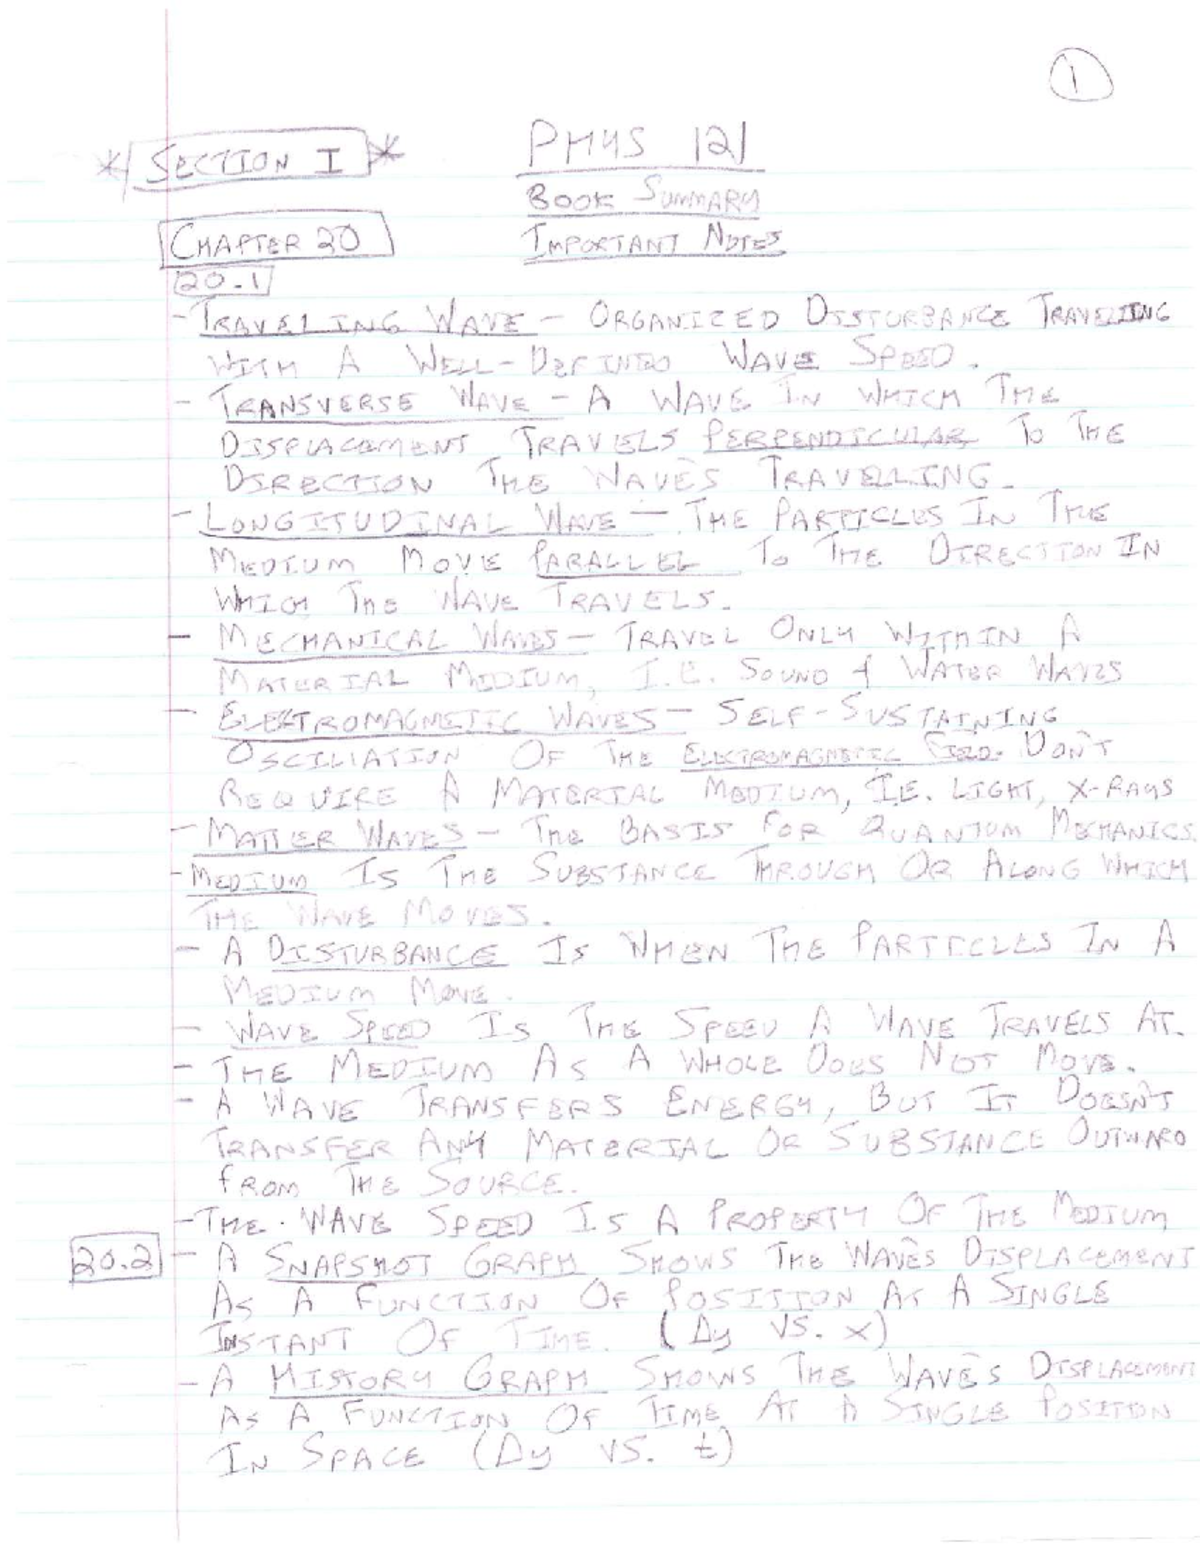 1
* SECTION I *
PHYS 121
BOOK SUMMARY
CHAPTER 20
IMPORTANT NOTES
20.1
- TRAVELING WAVE - ORGANIZED DISTURBANCE TRAVELING
WITH A WELL-DEFINED WAVE SPEED.
- TRANSVERSE WAVE - A WAVE IN WHICH THE
DISPLACEMENT TRAVELS PERPENDICULAR TO THE
DIRECTION THE WAVE'S TRAVELLING.
- LONGITUDINAL WAVE - THE PARTICLES IN THE
MEDIUM MOVE PARALLEL TO THE DIRECTION IN
WHICH THE WAVE TRAVELS.
- MECHANICAL WAVES - TRAVEL ONLY WITHIN A
MATERIAL MEDIUM, I.E. SOUND & WATER WAVES
- ELECTROMAGNETIC WAVES - SELF-SUSTAINING
OSCILLATION OF THE ELECTROMAGNETIC FIELD. DON'T
REQUIRE A MATERIAL MEDIUM, I.E. LIGHT, X-RAYS
- MATTER WAVES - THE BASIS FOR QUANTUM MECHANICS.
- MEDIUM IS THE SUBSTANCE THROUGH OR ALONG WHICH
THE WAVE MOVES.
- A DISTURBANCE IS WHEN THE PARTICLES IN A
MEDIUM MOVE.
- WAVE SPEED IS THE SPEED A WAVE TRAVELS AT.
- THE MEDIUM AS A WHOLE DOES NOT MOVE.
- A WAVE TRANSFERS ENERGY, BUT IT DOESN'T
TRANSFER ANY MATERIAL OR SUBSTANCE OUTWARD
FROM THE SOURCE.
- THE WAVE SPEED IS A PROPERTY OF THE MEDIUM
20.2 - A SNAPSHOT GRAPH SHOWS THE WAVE'S DISPLACEMENT
AS A FUNCTION OF POSITION AT A SINGLE
INSTANT OF TIME. (Δy VS. x)
- A HISTORY GRAPH SHOWS THE WAVE'S DISPLACEMENT
AS A FUNCTION OF TIME AT A SINGLE POSITION
IN SPACE (Δy VS. t)